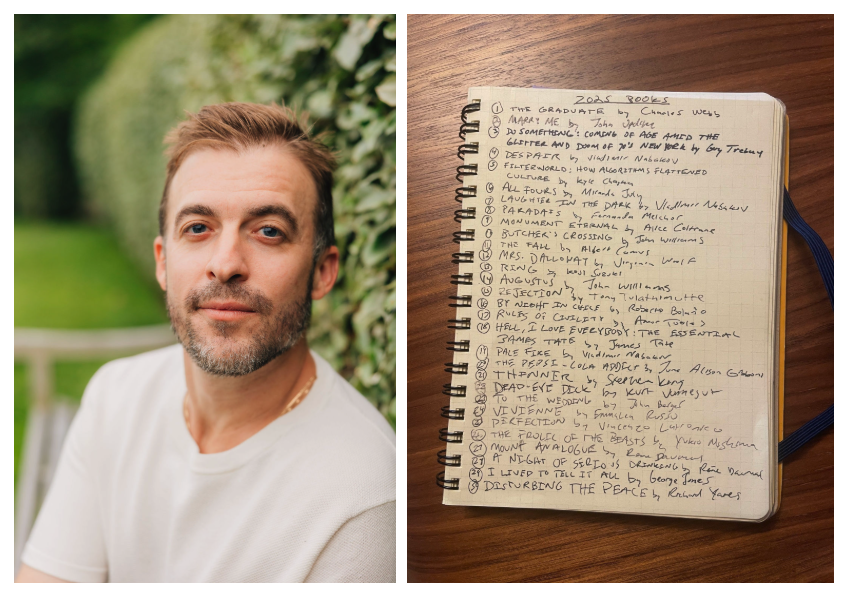 2025 BOOKS
1 THE GRADUATE by Charles Webb
2 MARRY ME by John Updike
3 DO SOMETHING: COMING OF AGE AMID THE
GLITTER AND DOOM OF 70'S NEW YORK by Guy Trebay
4 DESPAIR by Vladimir Nabokov
5 FILTERWORLD: HOW ALGORITHMS FLATTENED
CULTURE by Kyle Chayka
6 ALL FOURS by Miranda July
7 LAUGHTER IN THE DARK by Vladimir Nabokov
8 PARADAIS by Fernanda Melchor
9 MONUMENT ETERNAL by Alice Coltrane
10 BUTCHER'S CROSSING by John Williams
11 THE FALL by Albert Camus
12 MRS. DALLOWAY by Virginia Woolf
13 RING by Koji Suzuki
14 AUGUSTUS by John Williams
15 REJECTION by Tony Tulathimutte
16 BY NIGHT IN CHILE by Roberto Bolaño
17 RULES OF CIVILITY by Amor Towles
18 HELL, I LOVE EVERYBODY: THE ESSENTIAL
JAMES TATE by James Tate
19 PALE FIRE by Vladimir Nabokov
20 THE PEPSI-COLA ADDICT by June Alison Gibbons
21 THINNER by Stephen King
22 DEAD-EYE DICK by Kurt Vonnegut
23 TO THE WEDDING by John Berger
24 VIVIENNE by Emmalea Russo
25 PERFECTION by Vincenzo Latronico
26 THE FROLIC OF THE BEASTS by Yukio Mishima
27 MOUNT ANALOGUE by René Daumal
28 A NIGHT OF SERIOUS DRINKING by René Daumal
29 I LIVED TO TELL IT ALL by George Jones
30 DISTURBING THE PEACE by Richard Yates